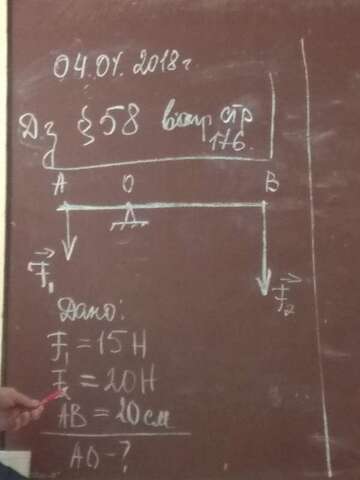 04.04.2018г
Дз §58 вопр стр
176.
A O B
F₁
F₂
Дано:
F₁ = 15 Н
F₂ = 20 Н
AB = 20 см
AO - ?